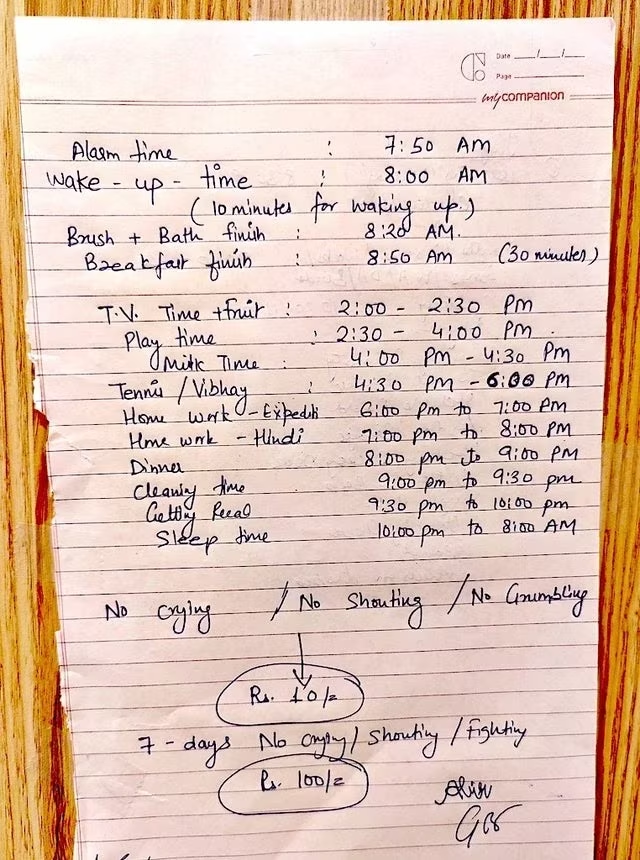 Date __/__/__
Page
mycompanion
Alarm time : 7:50 AM
Wake - up - time : 8:00 AM
(10 minutes for waking up.)
Brush + Bath finish : 8:20 AM.
Breakfast finish : 8:50 AM (30 minutes)
T.V. Time + fruit : 2:00 - 2:30 PM
Play time : 2:30 - 4:00 PM.
Milk Time : 4:00 PM - 4:30 PM
Tennis / Vibhay : 4:30 PM - 6:00 PM
Home work - 6:00 PM to 7:00 PM
Hme work - Hindi 7:00 pm to 8:00 PM
Dinner 8:00 pm to 9:00 PM
Cleaning time 9:00 pm to 9:30 pm
Getting 9:30 pm to 10:00 pm
Sleep time 10:00 pm to 8:00 AM
No crying / No Shouting / No Grumbling
Rs. 10/=
7 - days No Crying / Shouting / Fighting
Rs. 100/=